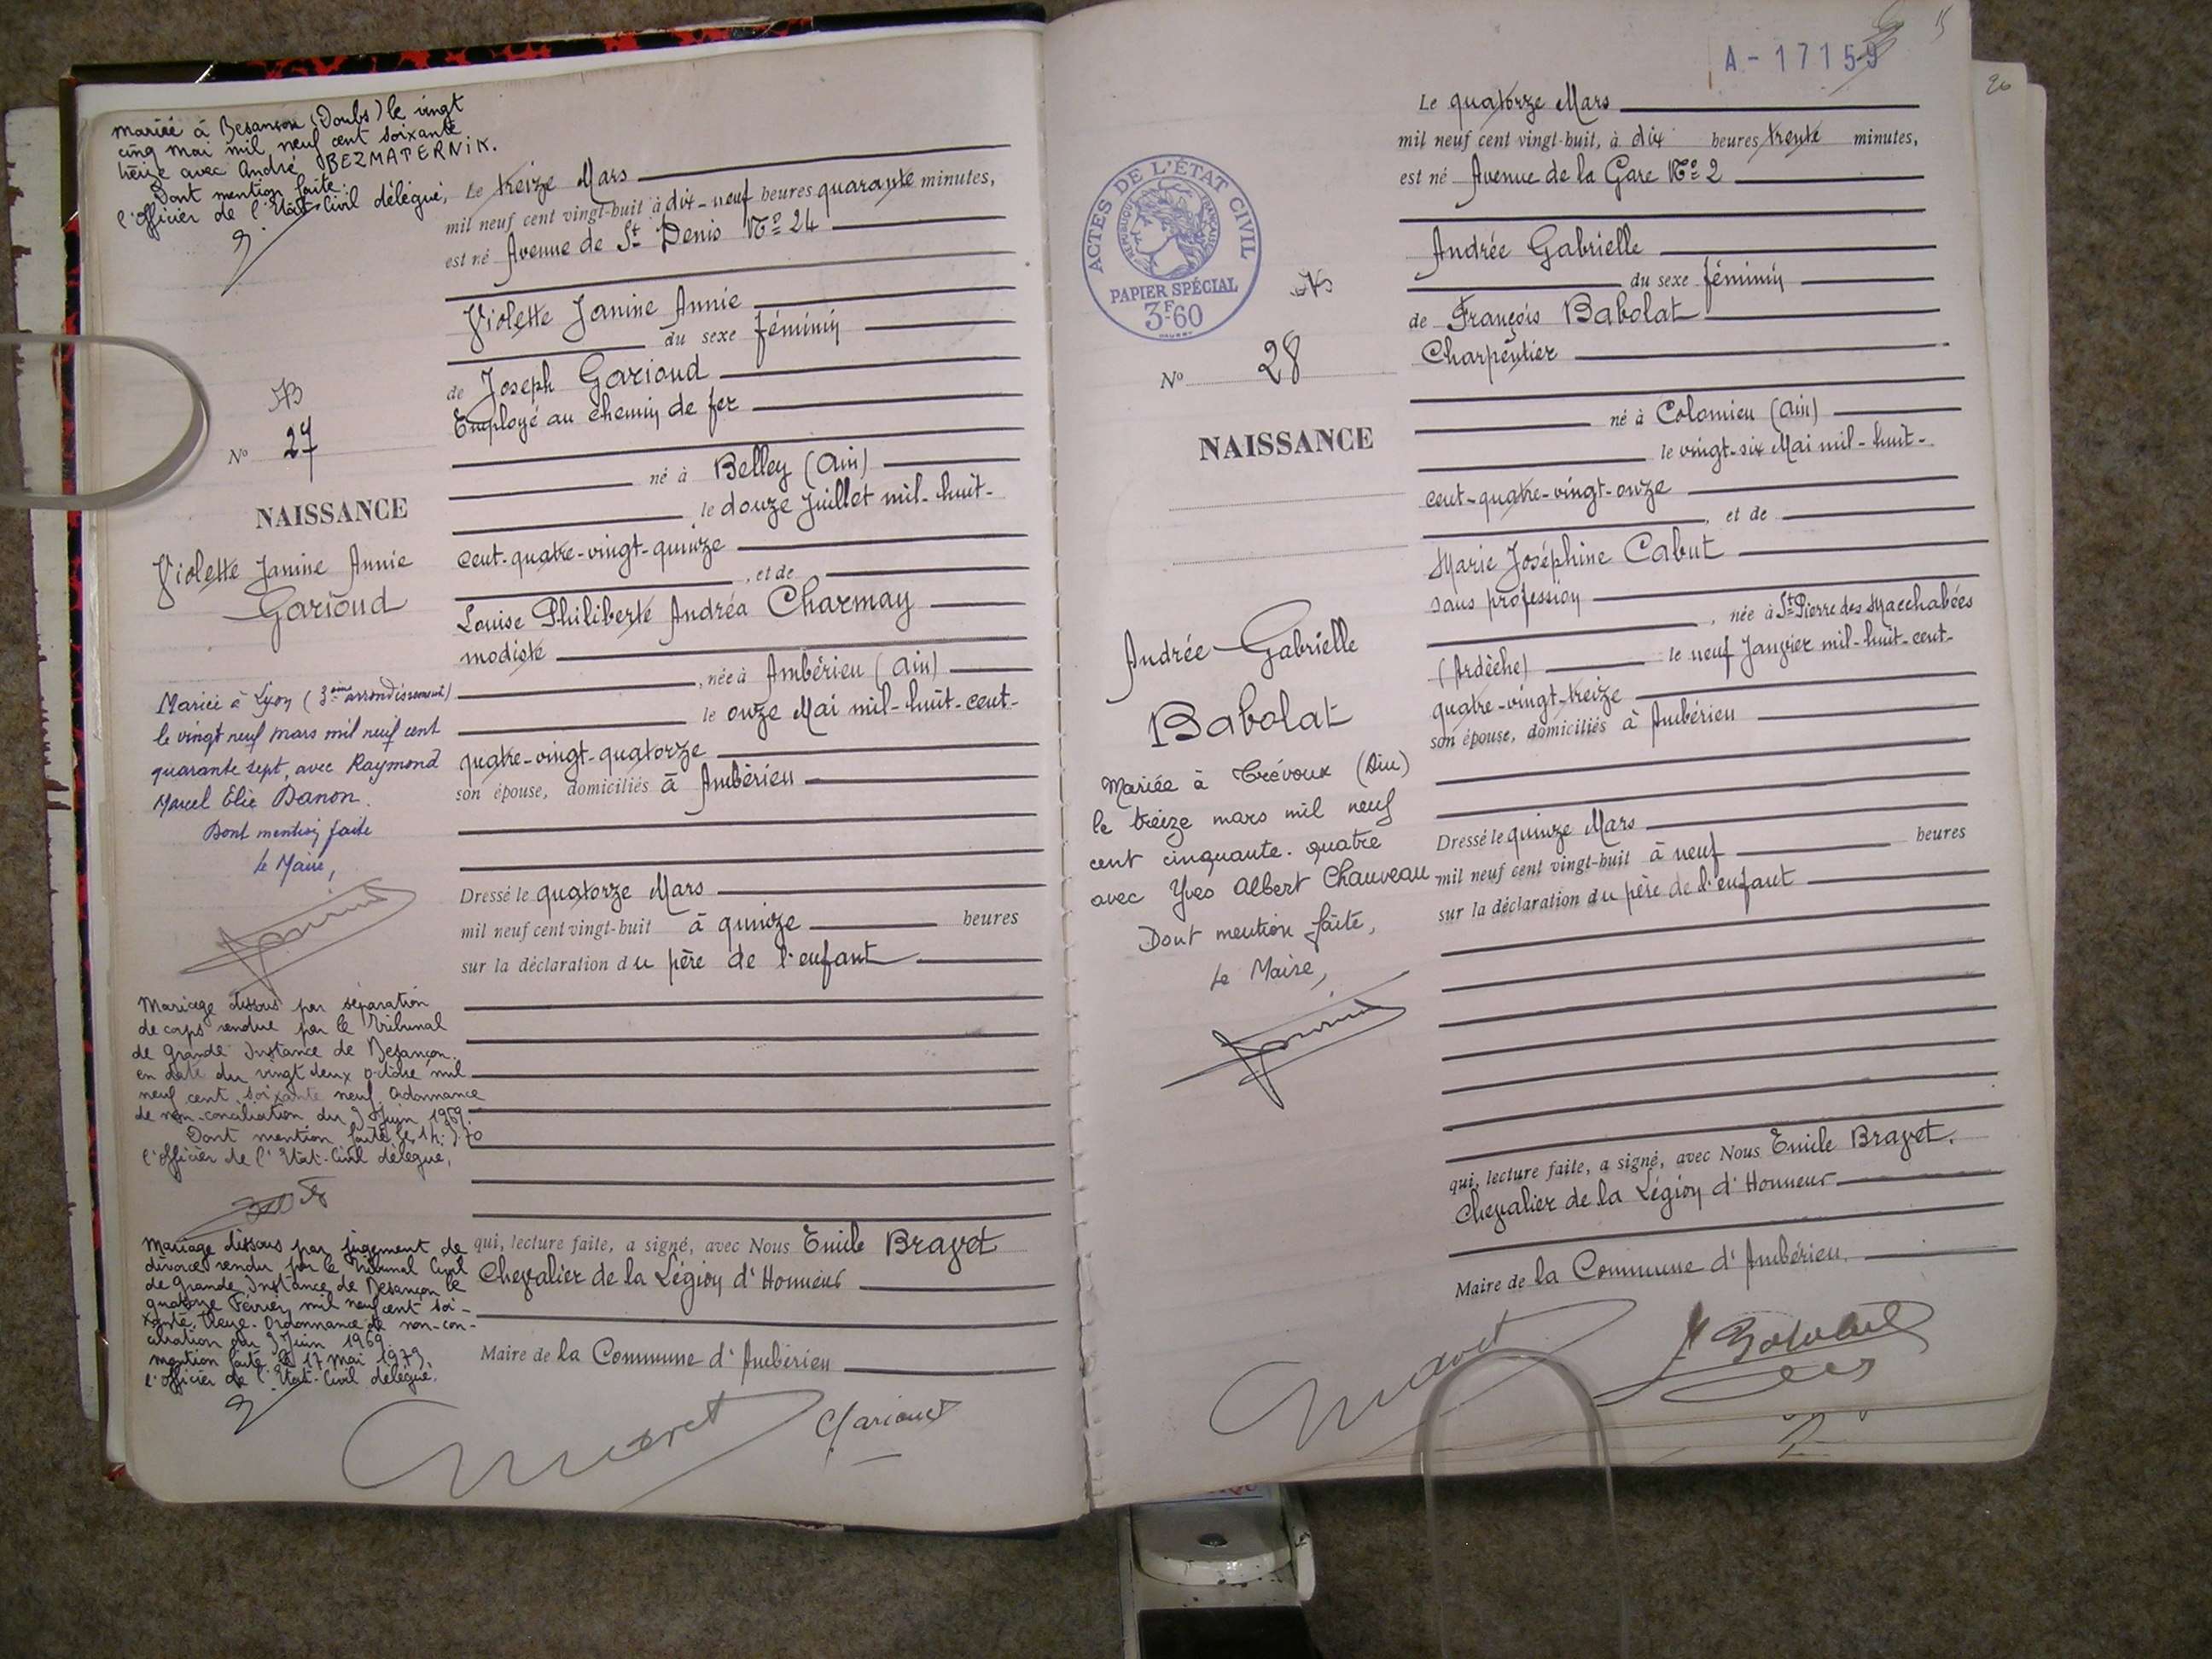 mariée à Besançon (Doubs) le vingt
cinq mai mil neuf cent soixante
treize avec André BEZMATERNIK.
Dont mention faite.
l'officier de l'Etat-Civil délégué,
Le treize Mars
mil neuf cent vingt-huit à dix-neuf heures quarante minutes,
est né Avenue de St Denis No 24
Violette Janine Annie
du sexe féminin
de Joseph Garioud
Employé au chemin de fer
né à Belley (Ain)
le douze Juillet mil-huit-
cent-quatre-vingt-quinze
, et de
Louise Philiberte Andréa Charmay
modiste
, née à Ambérieu (Ain)
le onze Mai mil-huit-cent-
quatre-vingt-quatorze
son épouse, domiciliés à Ambérieu
Dressé le quatorze Mars
mil neuf cent vingt-huit à quinze heures
sur la déclaration du père de l'enfant
qui, lecture faite, a signé, avec Nous Emile Bravet
Chevalier de la Légion d'Honneur
Maire de la Commune d'Ambérieu
No 27
NAISSANCE
Violette Janine Annie
Garioud
Mariée à Lyon (3ème arrondissement)
le vingt neuf mars mil neuf cent
quarante sept, avec Raymond
Marcel Elie Danon.
Dont mention faite
Le Maire,
Mariage dissous par séparation
de corps rendue par le Tribunal
de Grande Instance de Besançon.
en date du vingt deux octobre mil
neuf cent soixante neuf. Ordonnance
de non-conciliation du 9 Juin 1969.
Dont mention faite le
l'officier de l'Etat-Civil délégué,
Mariage dissous par jugement de
divorce rendu par le Tribunal Civil
de Grande Instance de Besançon le
quatorze Février mil neuf cent soi-
xante treize. Ordonnance de non-con-
ciliation du 9 Juin 1969
mention faite le 17 Mai 1973.
l'officier de l'Etat-Civil délégué.
Garioud
A-17159
20
Le quatorze Mars
mil neuf cent vingt-huit, à dix heures trente minutes,
est né Avenue de la Gare No 2
Andrée Gabrielle
du sexe féminin
de François Babolat
Charpentier
né à Colomieu (Ain)
le vingt-six Mai mil-huit-
cent-quatre-vingt-onze
, et de
Marie Joséphine Cabut
sans profession
, née à St Pierre des Macchabées
(Ardèche) le neuf Janvier mil-huit-cent-
quatre-vingt-treize
son épouse, domiciliés à Ambérieu
Dressé le quinze Mars
mil neuf cent vingt-huit à neuf heures
sur la déclaration du père de l'enfant
qui, lecture faite, a signé, avec Nous Emile Bravet.
Chevalier de la Légion d'Honneur
Maire de la Commune d'Ambérieu.
ACTES DE L'ÉTAT CIVIL
RÉPUBLIQUE FRANÇAISE
PAPIER SPÉCIAL
3F60
No 28
NAISSANCE
Andrée Gabrielle
Babolat
Mariée à Trévoux (Ain)
le treize mars mil neuf
cent cinquante. quatre
avec Yves Albert Chauveau
Dont mention faite,
Le Maire,
Babolat